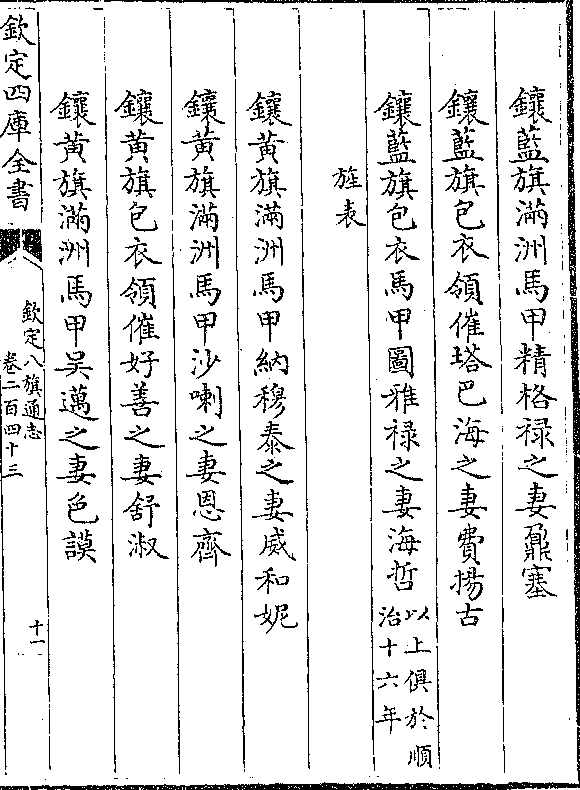 鑲藍旗滿洲馬甲精格祿之妻鼐塞
鑲藍旗包衣領催塔巴海之妻費揚古
鑲藍旗包衣馬甲圖雅祿之妻海哲以上俱於順
治十六年
旌表
鑲黃旗滿洲馬甲納穆泰之妻威和妮
鑲黃旗滿洲馬甲沙喇之妻恩齊
鑲黃旗包衣領催好善之妻舒淑
鑲黃旗滿洲馬甲吴邁之妻色謨
欽定四庫全書
欽定八旗通志
卷二百四十三
十一